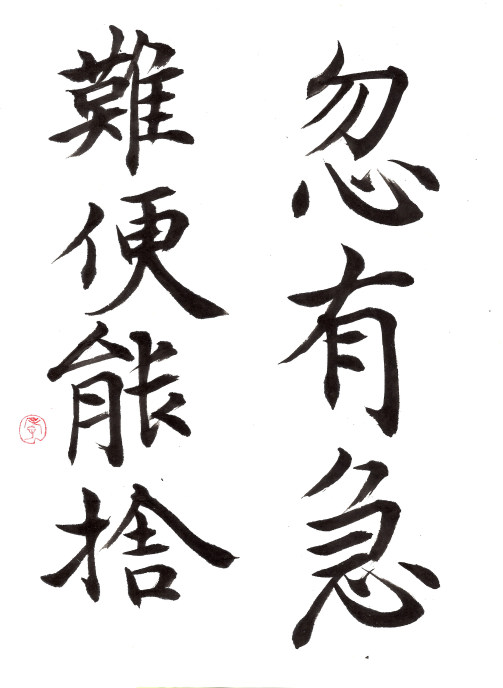 忽有急
難便能捨